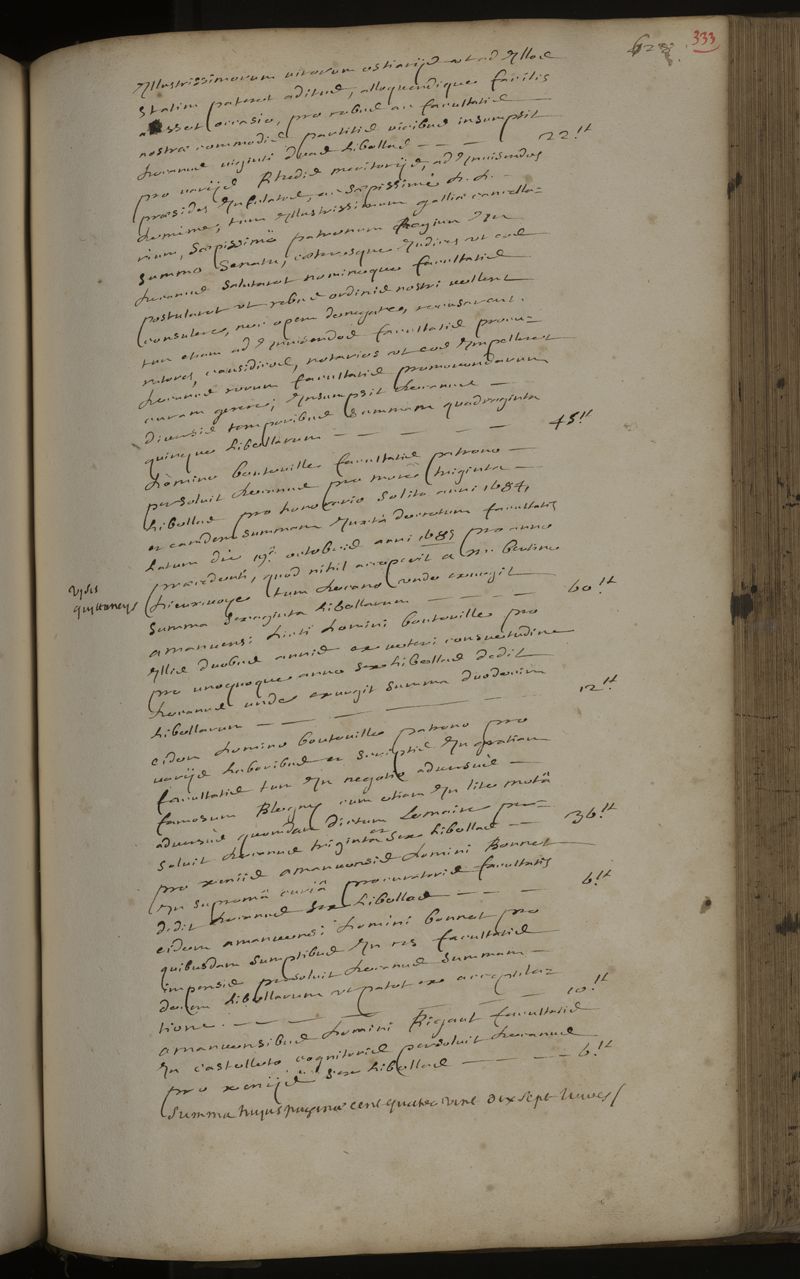 623
333
Illustrissimorum virorum ostiarijs ut ad illos
statim pateret aditus, alloquendique facilis
esset occasio, pro rebus ac facultatis
nostræ commodis partitis vicibus insumpsit
Decanus viginti duas libellas — — 22.tt
pro varijs Rhedis meritorijs, ad invisendos
præsides Infulatos, ac sæpissimè D. D.
tum Illustrissimum galliæ cancella=
rium, sæpissimè patronum Regium In
summo senatu, cæterosque Iudices ut eos
Decanus salutaret nomineque facultatis
postularet ut rebus ordinis nostri vellent
consulere, nec opem denegare, recusarent.
tum etiam ad invisendos facultatis procu=
ratores, causidicos, notarios ut eos Impelleret
Decanus rerum facultatis promovendarum
curam gerere; Insumpsit Decanus —
diversis temporibus summam quadraginta
quinque libellarum — — — — 45.tt
Domino bouteuille facultatis patrono —
persoluit Decanus pro more triginta —
libellas pro honorario solito anni 1684,
et eamdem summam Iuxtà decretum facultatis
Latum die 19.ª octobris anni 1685 pro anno
præcedenti, quod nihil acceperit a m.
tum Decano unde exurgit
summa sexaginta libellarum — — — 60.tt
Vysis
quittancys
amanuensi dicti Domini bouteuille pro
Illis duobus annis ex veteri consuetudine
pro unoquoque anno sex libellas dedit
Decanus unde exurgit summa duodecim
libellarum — — — — 12.tt
eidem Domino bouteuille patrono pro
varijs laboribus et scriptis In gratiam
facultatis tum In negotio adversùs —
famosum Blegny cum etiam In lite motâ
adversùs quemdam dictum Lemaire per=
soluit Decanus triginta et sex libellas — 36.tt
pro xenijs amanuensis Domini Bonnet
In supremâ curiâ procuratoris facultatis
dedit Decanus sex libellas — — — 6.tt
eidem amanuensi Domini bonnet pro
quibusdam sumptibus In res facultatis
impensis persoluit Decanus summam —
decem libellarum ut patet ex acceptila=
tione. — — — — 10.tt
amanuensibus Domini Rigaut facultatis
In castelleto cognitoris persoluit Decanus
pro xenijs sex libellas — — — 6.tt
Summa hujus paginæ cent quatre vint dix sept livres/